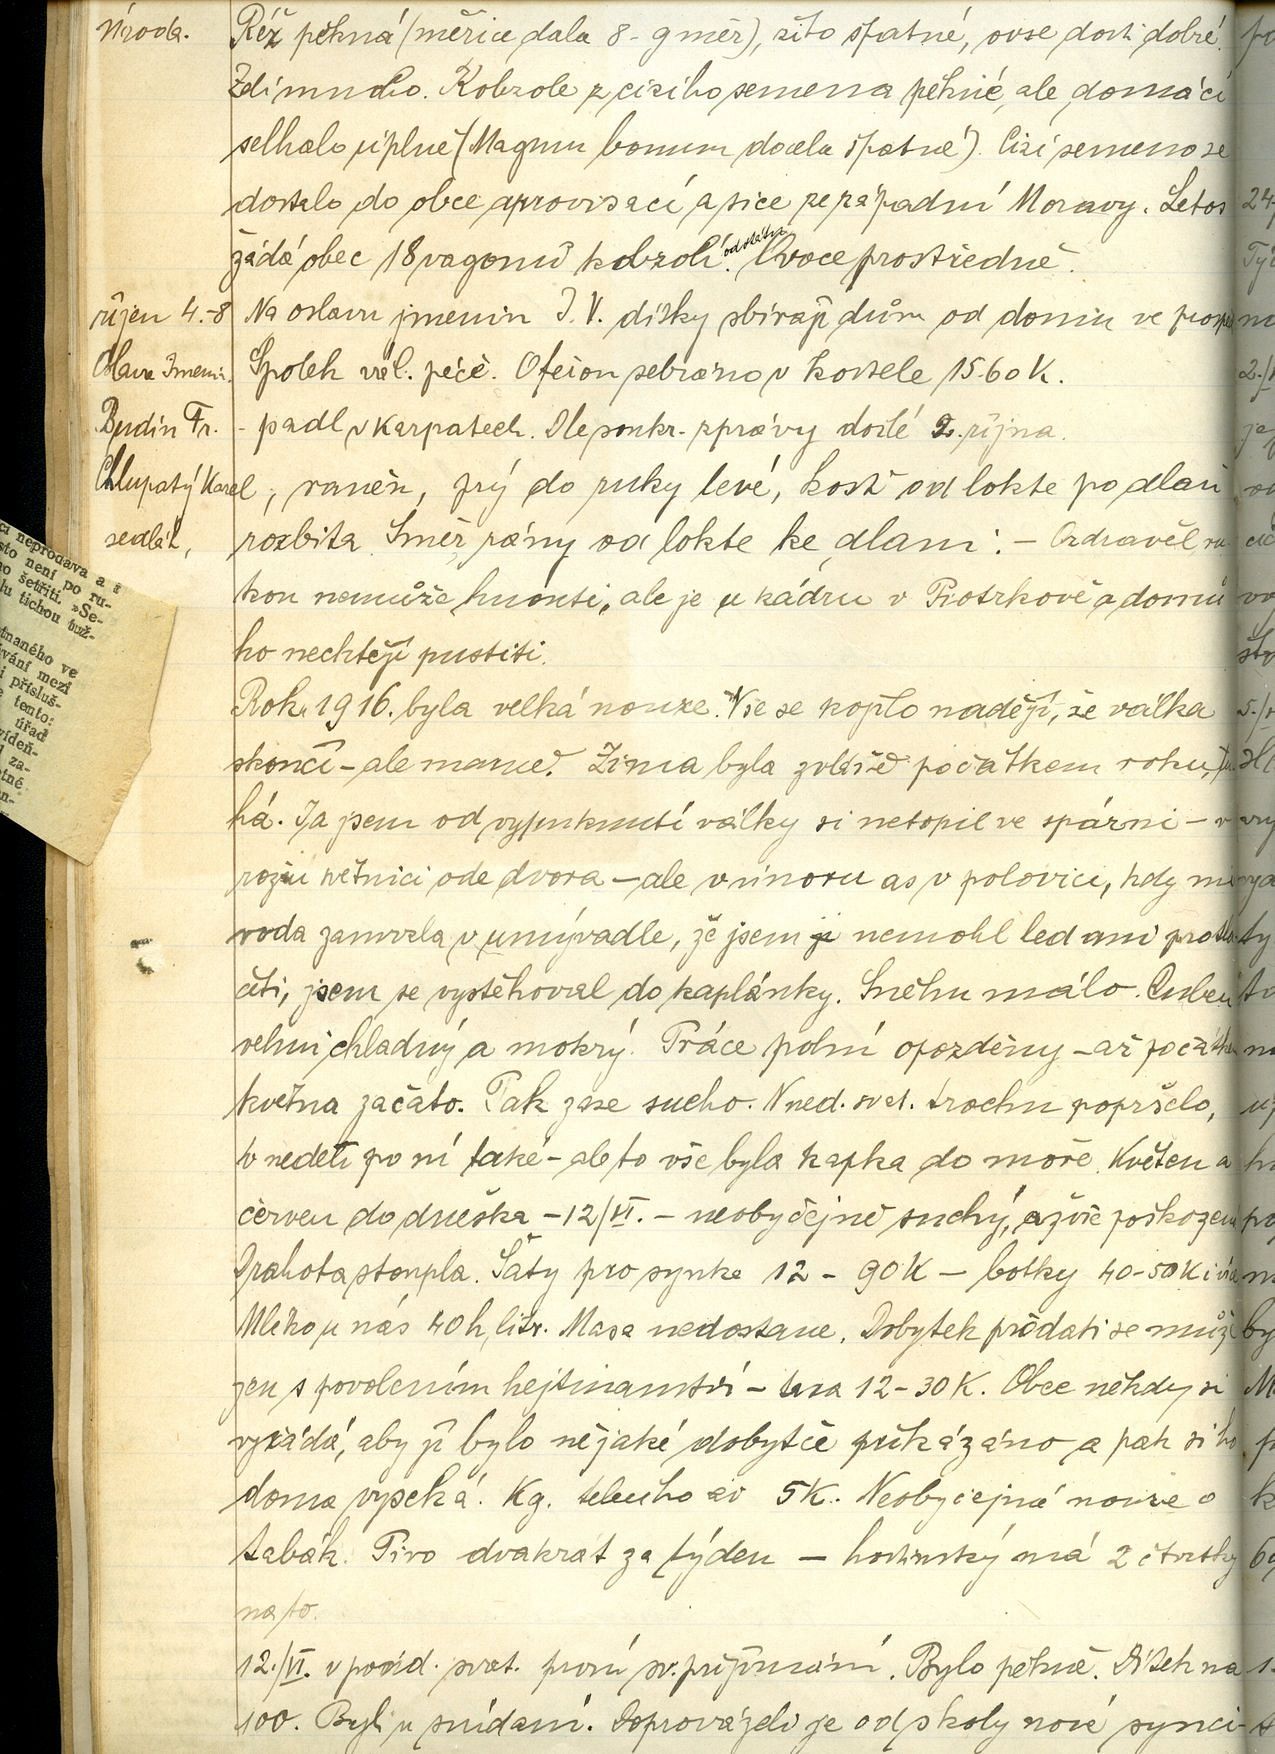 Úroda. Réž pěkná (měřice dala 8-9 měr), žito špatné, ovse dosti dobré.
Zdí mnoho. Kobzole z cizího semena pěkné, ale domácí
selhalo úplně (Magnum bonum docela špatné). Cizí semeno se
dostalo do obce aprovisací a sice ze západní Moravy. Letos
žádá obec 18 vagonů kobzolí od státu. Ovoce prostředně.
říjen 4.-8 Na oslavu jmenin J. V. dítky sbírají dům od domu ve prosp
Oslava Jmenin. Spolek vál. péče. Ofěrou sebráno v kostele 15·60 K.
Budín Fr. - padl v Karpatech. Dle soukr. zprávy došlé 2. října.
Chlupatý Karel, raněn, prý do ruky levé, kost od lokte po dlaň
sedlák, rozbita. Směr rány od lokte ke dlani. - Ozdravěl, ru-
kou nemůže hnouti, ale je u kádru v Piotrkově a domů
ho nechtějí pustiti.
Rok 1916. byla velká nouze. Vše se kojilo nadějí, že válka
skončí - ale marně. Zima byla zvláště počátkem roku, tu-
há. Já jsem od vypuknutí války si netopil ve spárni - v
rožní světnici ode dvora - ale v únoru as v polovici, kdy mi
voda zamrzla v umývadle, že jsem ji nemohl led ani protlou-
cti, jsem se vystěhoval do kaplánky. Sněhu málo. Duben
velmi chladný a mokrý. Práce polní opozděny - až počátkem
května začato. Pak zase sucho. V ned. svat. trochu popršelo,
v neděli po ní také - ale to vše byla kapka do moře. Květen a
červen do dneška - 12/VI. - neobyčejně suchý, a vše poškozeno
Drahota stoupla. Šaty pro synka 12 - 90 K - botky 40-50 K i více
Mléko u nás 40 h litr. Masa nedostane. Dobytek prodati se může
jen s povolením hejtmanství - 12-30 K. Obec někdy si
vyžádá, aby jí bylo nějaké dobytče přikázáno a pak si ho
doma vyseká. Kg. telecího as 5 K. Neobyčejná nouze o
tabák. Pivo dvakrát za týden - hostinský má 2 čtvrtky
na to.
12./VI. v pond. svat. první sv. přijímání. Bylo pěkně. Dítek na
100. Byli u snídaní. Doprovázeli je od školy nové synci-